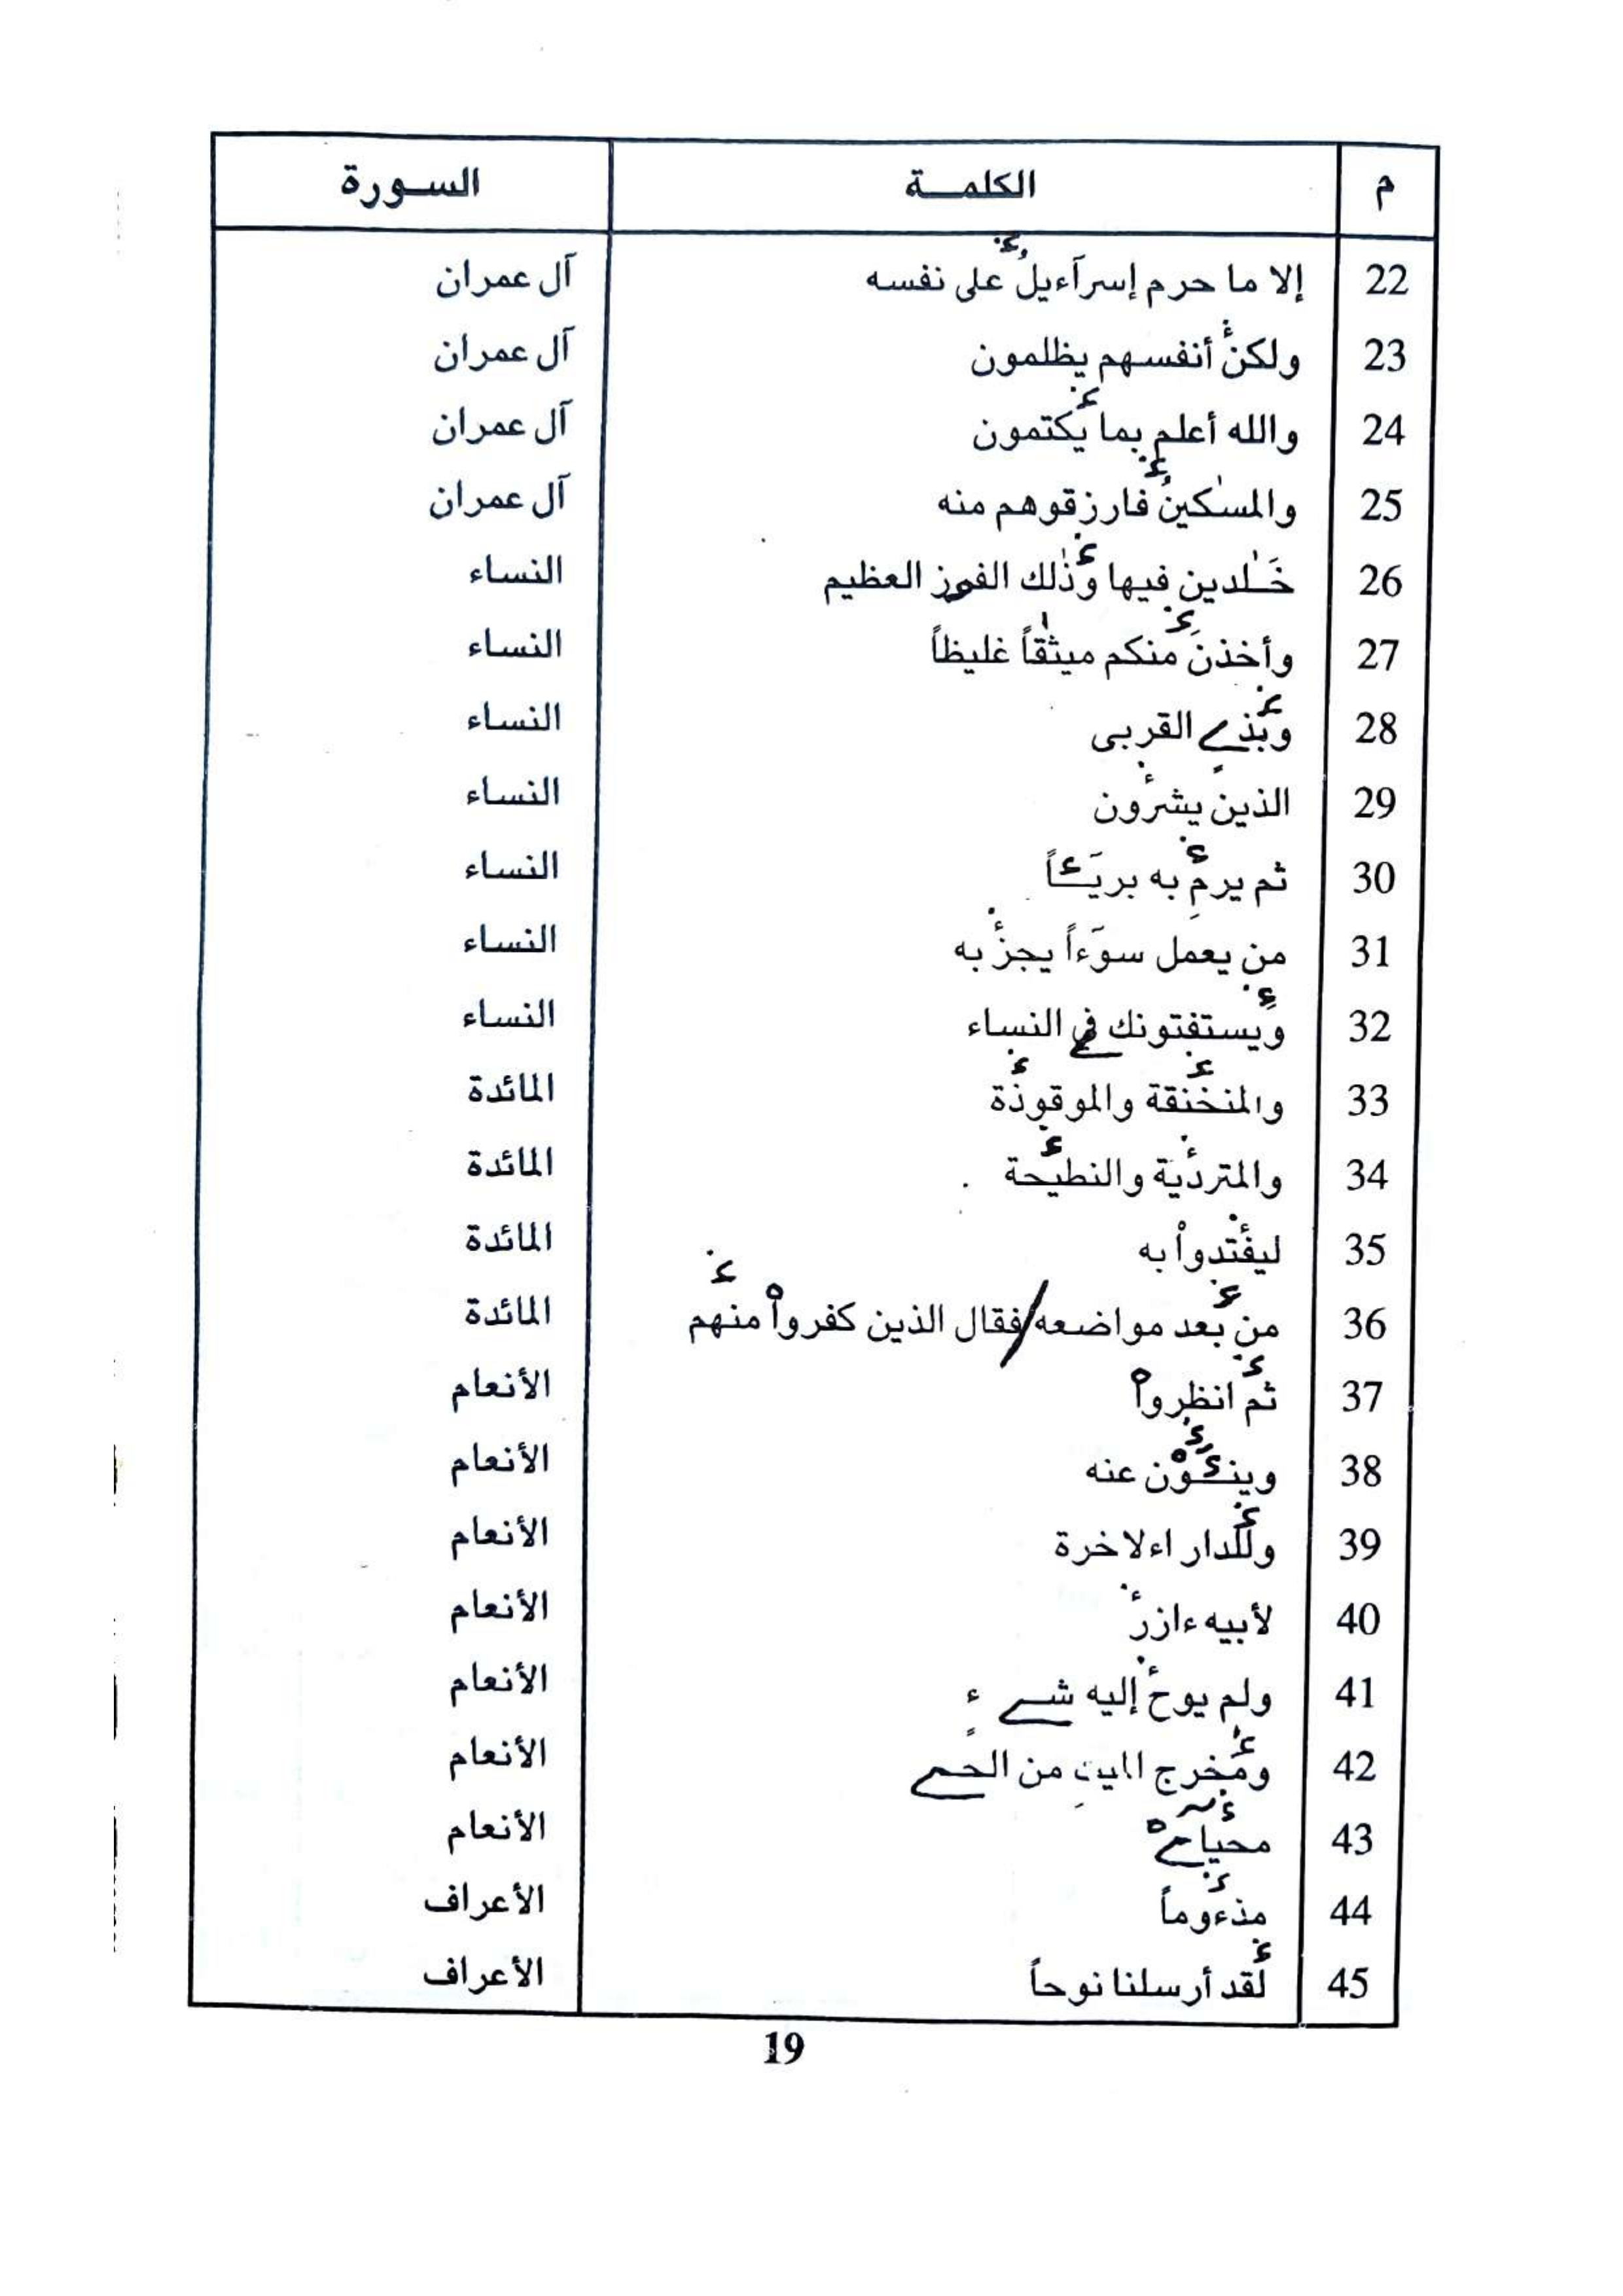 م الكلمة السورة
22 إلا ما حرم إسرآءيلُ على نفسه آل عمران
23 ولكن أنفسهم يظلمون آل عمران
24 والله أعلم بما يكتمون آل عمران
25 والمسٰكينُ فارزقوهم منه آل عمران
26 خَٰلدين فيها وذٰلك الفوز العظيم النساء
27 وأخذنَ منكم ميثٰقاً غليظاً النساء
28 وبذے القربى النساء
29 الذين يشرون النساء
30 ثم يرمِ به بريَـٔاً النساء
31 من يعمل سوٓءاً يجز به النساء
32 ويستفتونك في النساء النساء
33 والمنخنقة والموقوذة المائدة
34 والمتردية والنطيحة المائدة
35 ليفتدواْ به المائدة
36 من بعد مواضعه/فقال الذين كفرواْ منهم المائدة
37 ثم انظرواْ الأنعام
38 وينـٔوْن عنه الأنعام
39 وللدار اءلاخرة الأنعام
40 لأبيه ءازر الأنعام
41 ولم يوح إليه شے ء الأنعام
42 ومخرج الميت من الحے الأنعام
43 محياےْ الأنعام
44 مذءوماً الأعراف
45 لقد أرسلنا نوحاً الأعراف
19